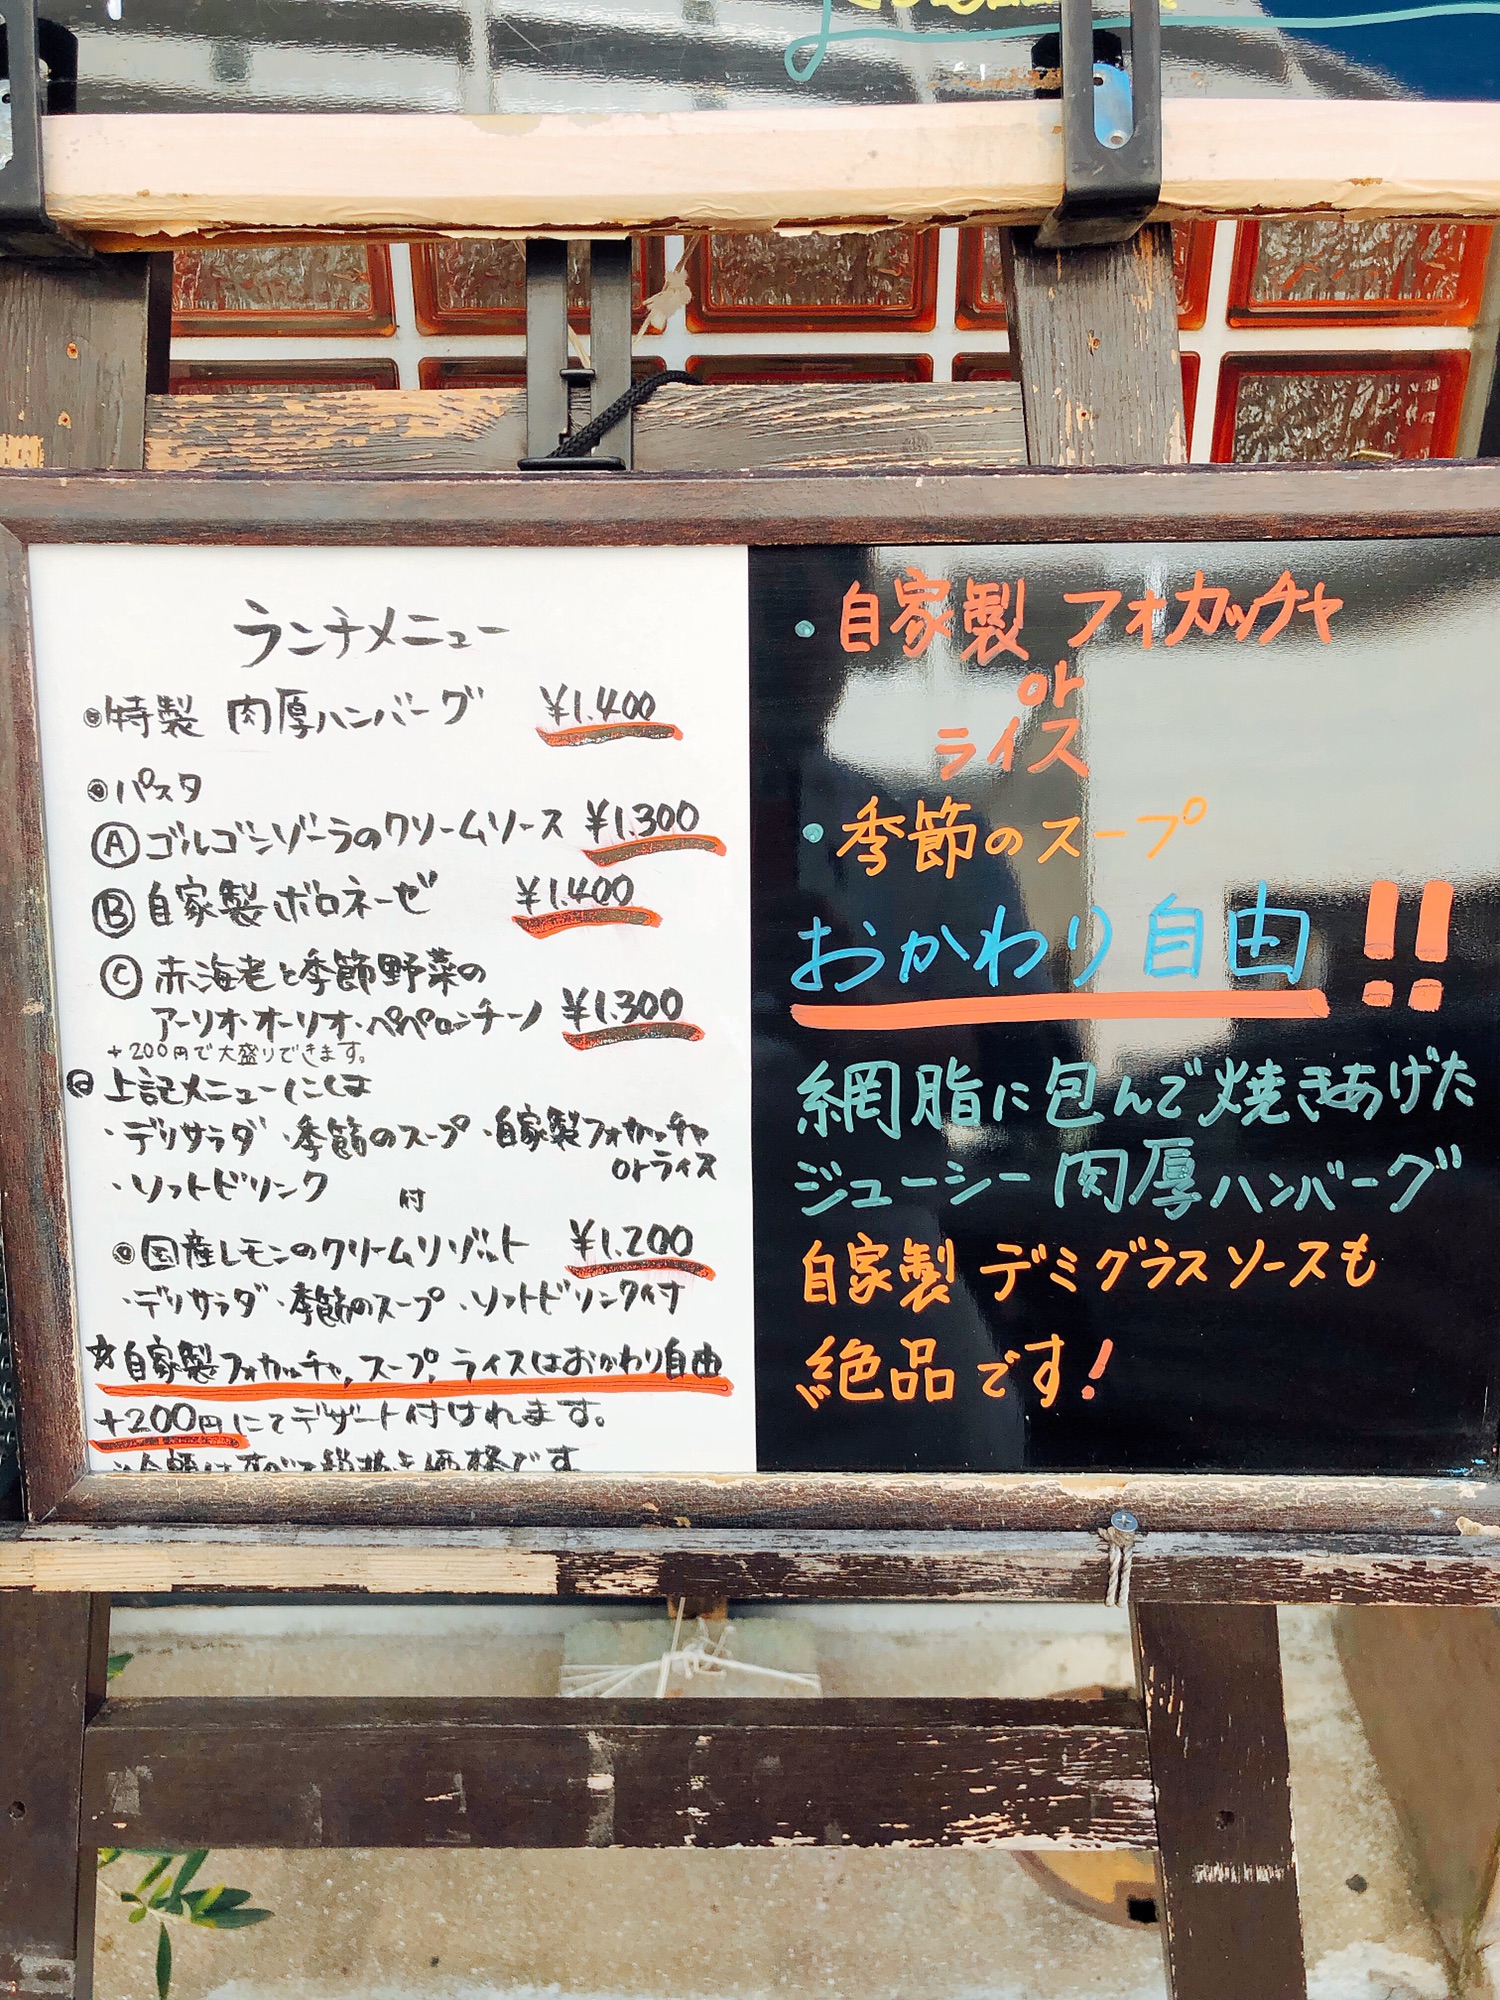 ランチメニュー
◎特製 肉厚ハンバーグ ¥1.400
◎パスタ
Ⓐゴルゴンゾーラのクリームソース ¥1.300
Ⓑ自家製ボロネーゼ ¥1.400
Ⓒ赤海老と季節野菜の
アーリオ・オーリオ・ペペロンチーノ ¥1.300
+200円で大盛りできます。
◎上記メニューには
・デリサラダ ・季節のスープ ・自家製フォカッチャ
orライス
・ソフトドリンク 付
◎国産レモンのクリームリゾット ¥1.200
・デリサラダ ・季節のスープ ・ソフトドリンク付
☆自家製フォカッチャ, スープ, ライスはおかわり自由
+200円にてデザート付けれます。
※金額はすべて税抜き価格です
・自家製 フォカッチャ
or
ライス
・季節のスープ
おかわり自由!!
網脂に包んで焼きあげた
ジューシー肉厚ハンバーグ
自家製 デミグラスソースも
絶品です!